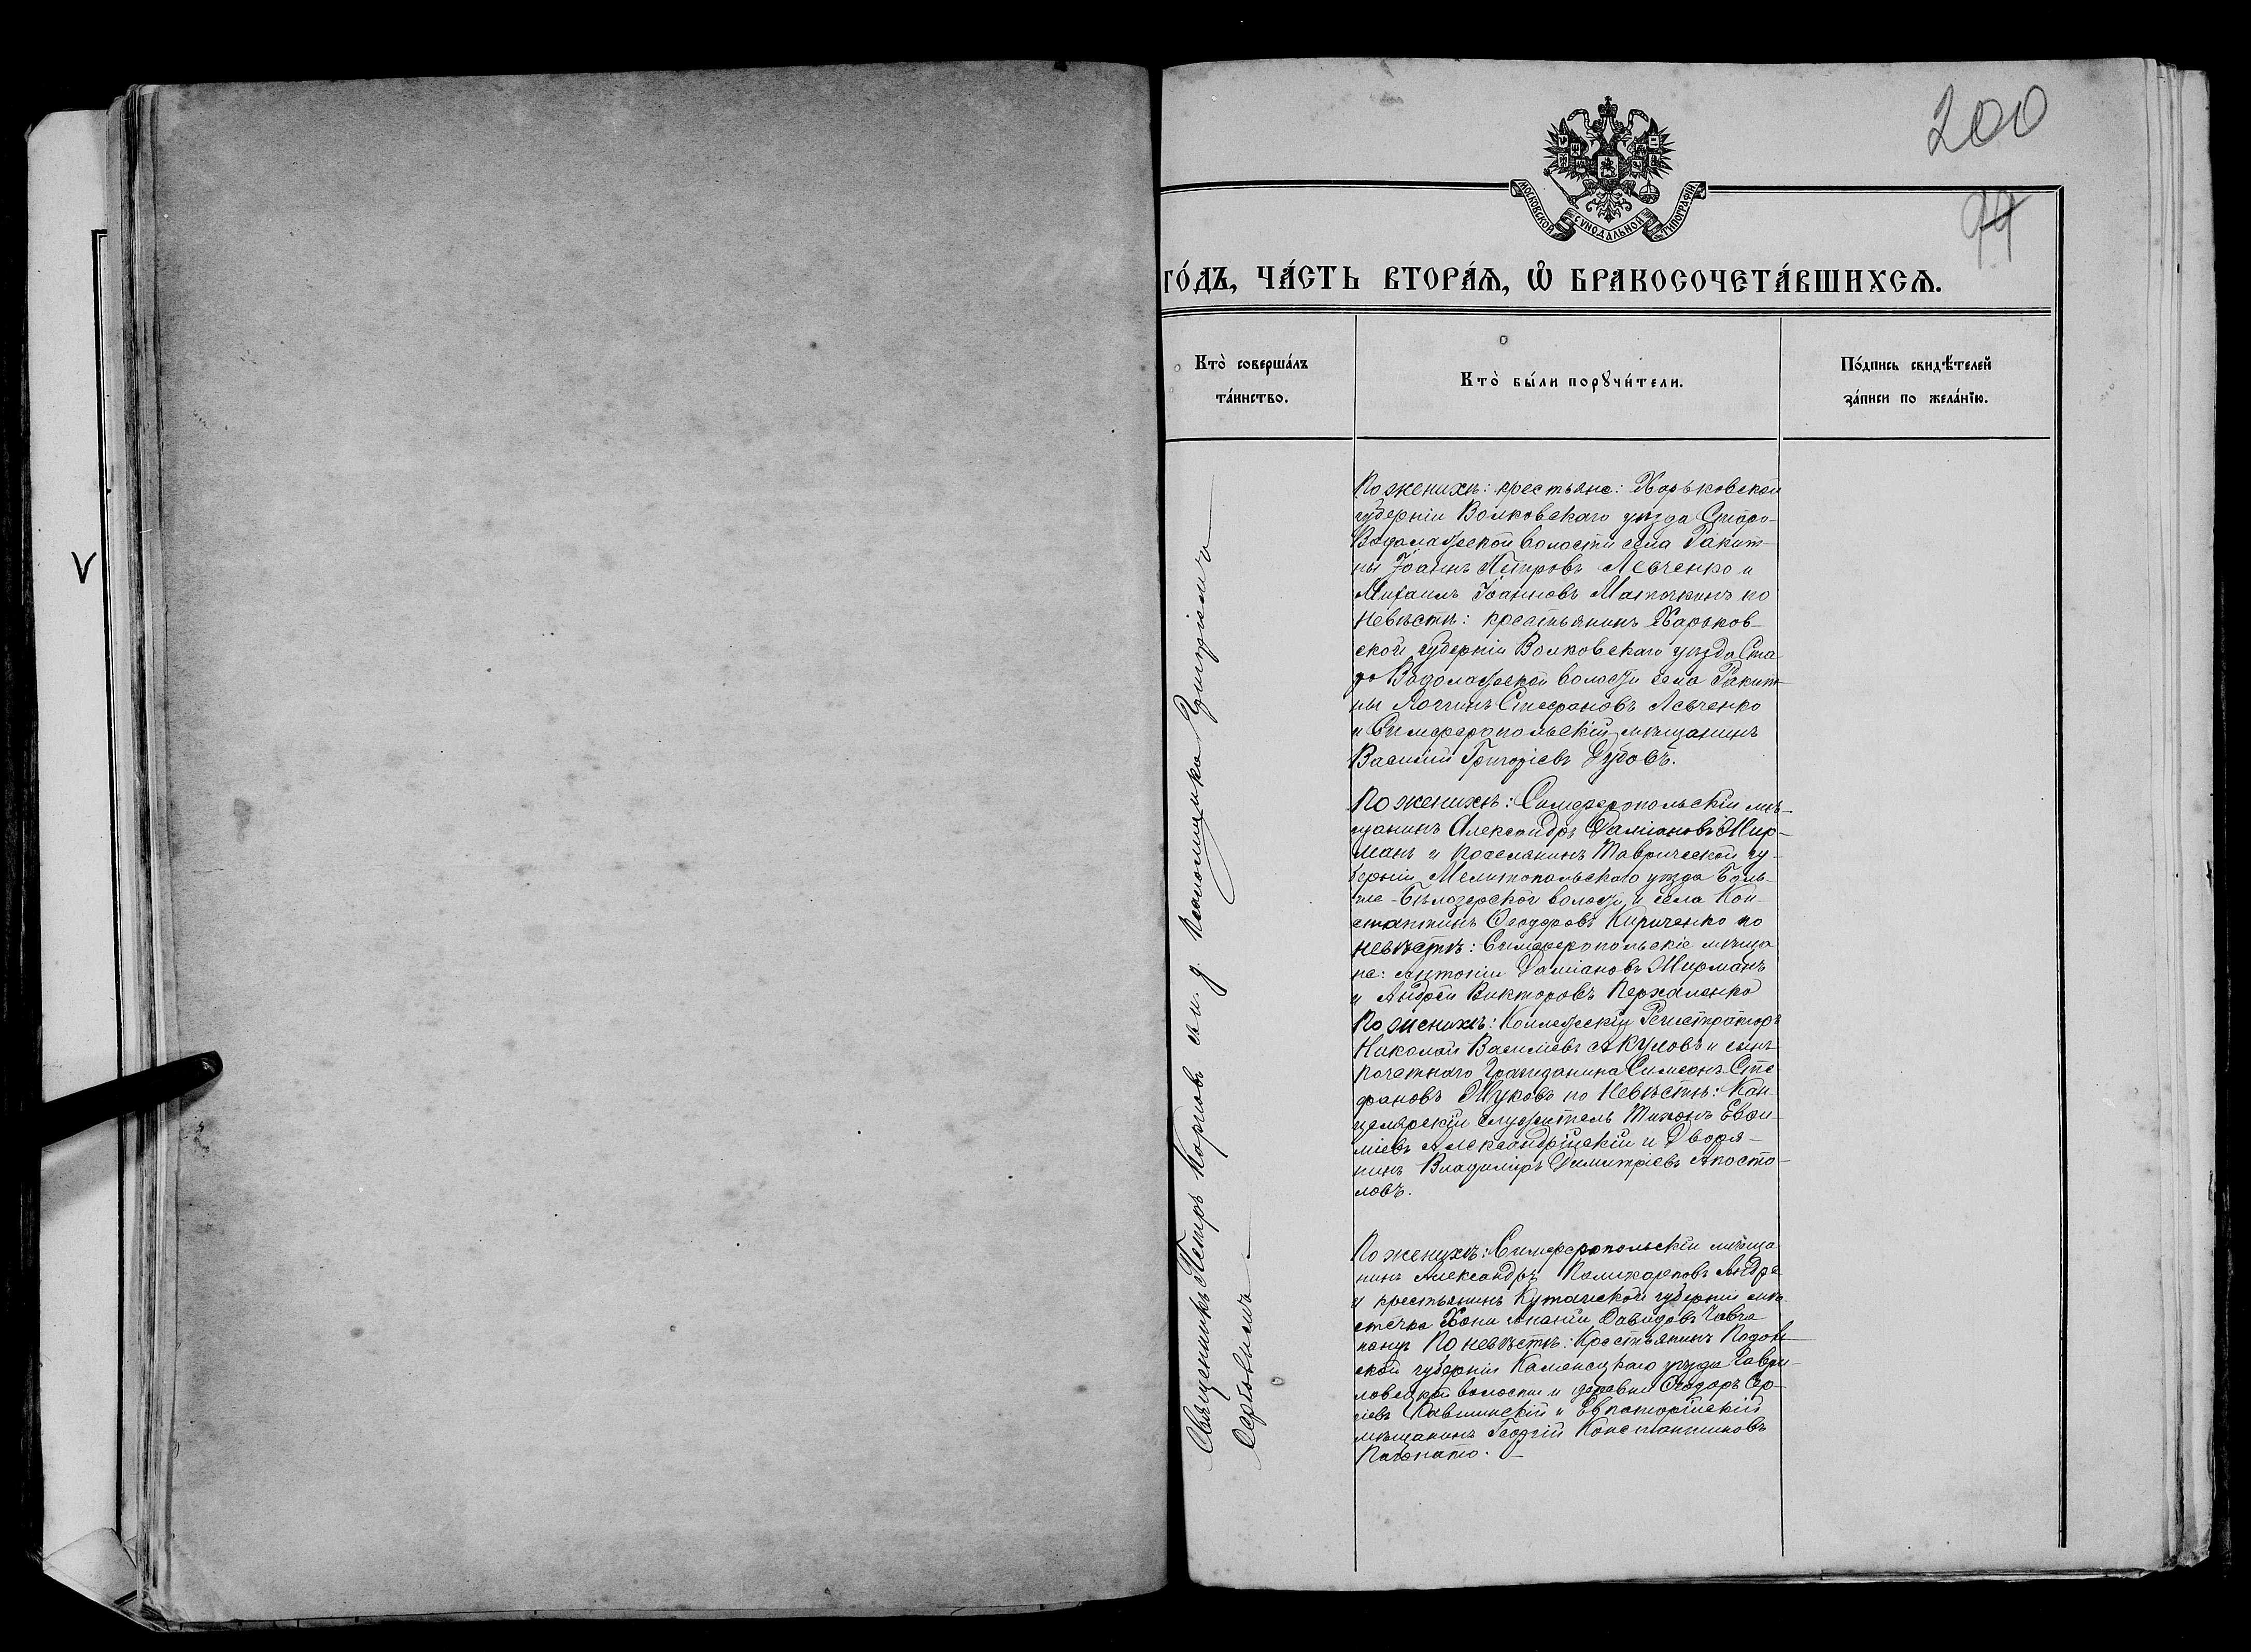 200
МОСКОВСКОЙ СУНОДАЛЬНОЙ ТИПОГРАФІИ
ГО́ДЪ, ЧА́СТЬ ВТОРА́Ѧ, Ѽ БРАКОСОЧЕТА́ВШИХСѦ.
Кто̀ соверша́лъ
та́инство.
Кто̀ бы́ли порꙋчи́тели.
По́дпись свидѣ́телей
за́писи по жела́нїю.
Священникъ Петръ Карповъ съ и. д. псаломщика Григоріемъ
Сербовымъ
По женихѣ: крестьяне: Харьковской
губерніи Волковскаго уѣзда Старо-
Водолажской волости села Ракит-
ны Іоаннъ Петровъ Левченко и
Михаилъ Іоанновъ по
невѣстѣ: крестьянинъ Харьков-
ской губерніи Волковскаго уѣзда Ста
ро Водолажской волости села Ракит-
ны Логгинъ Стефановъ Левченко
и Симферопольскій мѣщанинъ
Василій Григорьевъ Дубовъ.
По женихѣ: Симферопольскій мѣ-
щанинъ Александръ Даміановъ Мир-
манъ и поселянинъ Таврической гу-
берніи Мелитопольскаго уѣзда Боль-
ше-Бѣлозерской волости и села Кон-
стантинъ Ѳеодоровъ Кириченко по
невѣстѣ: Симферопольскіе мѣща
не: Антоній Даміановъ Мирманъ
и Андрей Викторовъ Пархаменко
По женихѣ: Коллежскій Регистраторъ
Николай Василіевъ Акуловъ и сынъ
почетнаго гражданина Симеонъ Сте
фановъ Жуковъ по невѣстѣ: Кан-
целярскій служитель Тихонъ Евѳи-
міевъ Александрійскій и Дворя-
нинъ Владиміръ Димитріевъ Апосто-
ловъ.
По женихѣ: Симферопольскій мѣща
нинъ Александръ Поликарповъ
и крестьянинъ Кутаиской губерніи мѣ
стечка Хони Ананій Давидовъ Чавча
По невѣстѣ: Крестьянинъ Подоль
ской губерніи Каменецкаго уѣзда Гаври-
ловецкой волости и деревни Ѳеодоръ Сер-
гіевъ и Евпаторійскій
мѣщанинъ Георгій Константиновъ